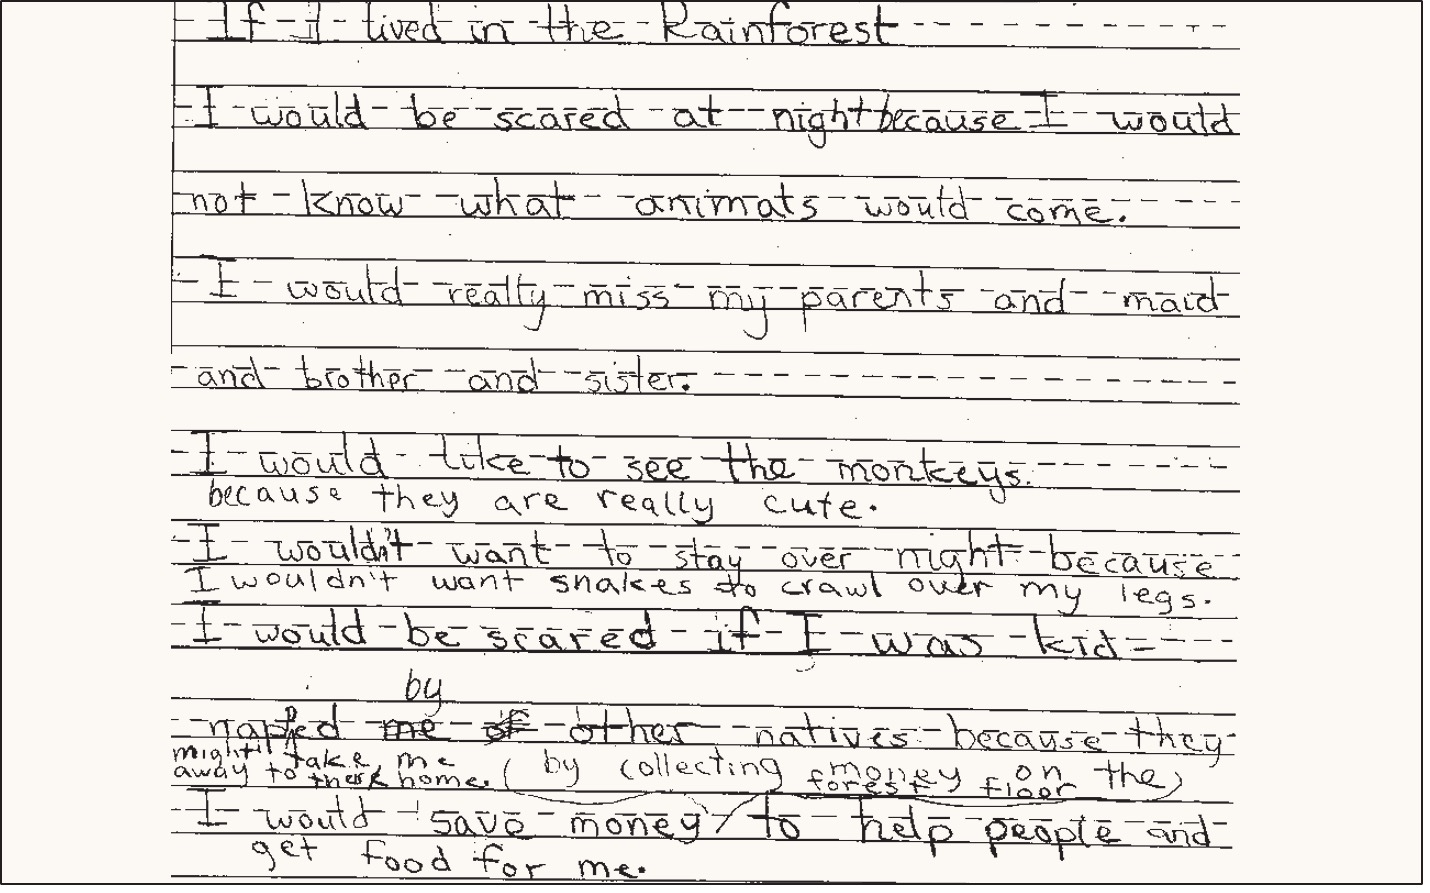 If I lived in the Rainforest
I would be scared at night because I would
not know what animals would come.
I would really miss my parents and maid
and brother and sister.
I would like to see the monkeys.
because they are really cute.
I wouldn't want to stay over night because
I wouldn't want snakes to crawl over my legs.
I would be scared if I was kid-
by
napped me of other natives because they
might take me
away to there home. (by collecting money on the
forest floor)
I would save money / to help people and
get food for me.